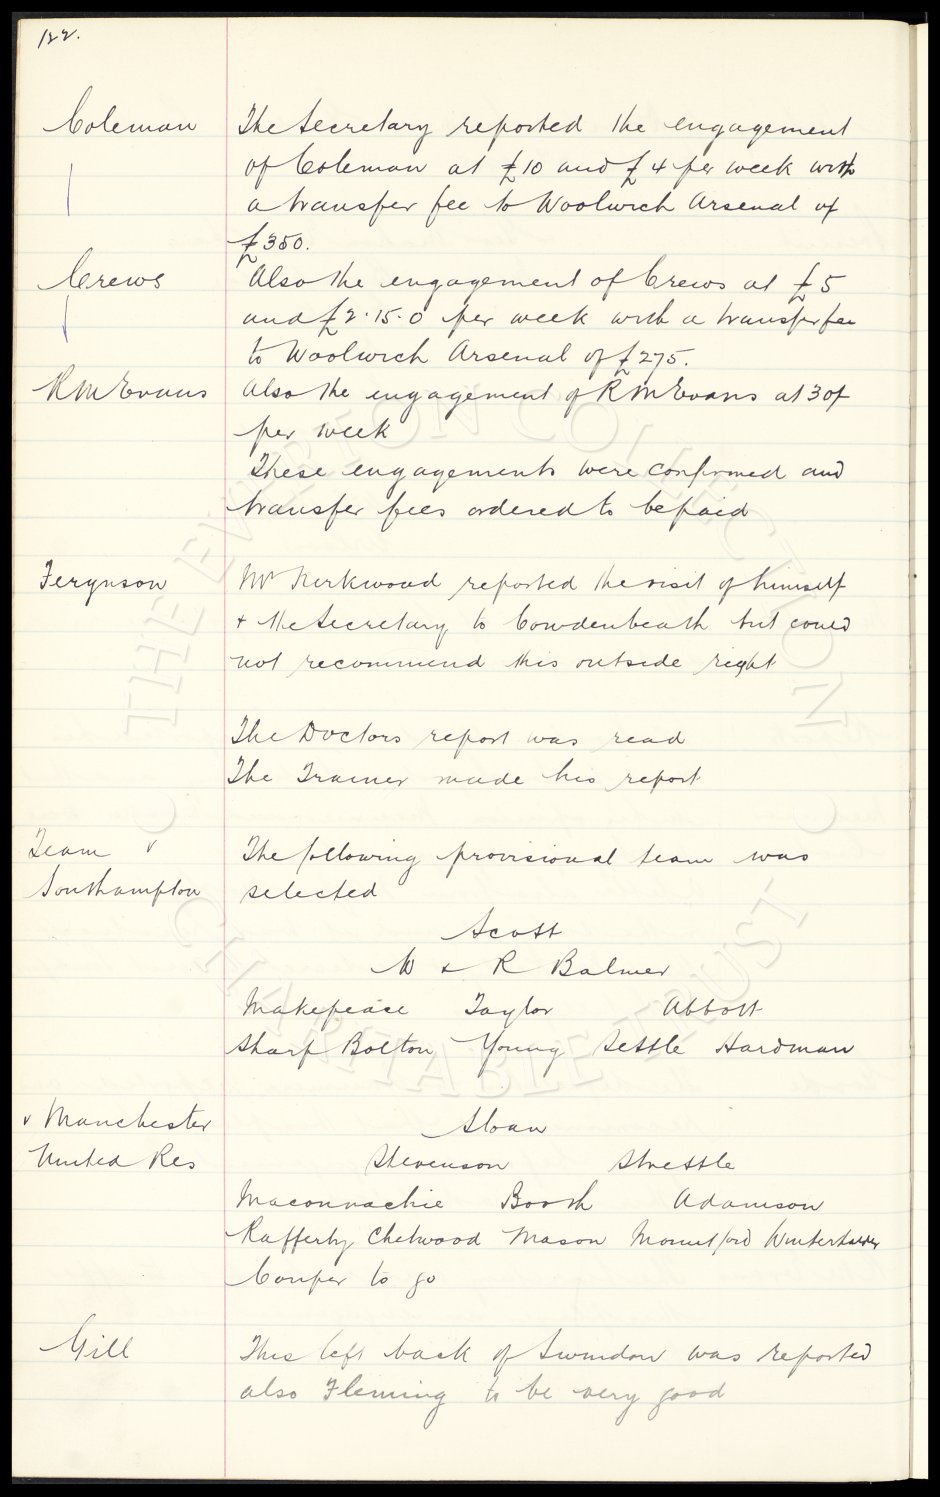 122.
Coleman The Secretary reported the engagement
of Coleman at £10 and £4 per week with
a transfer fee to Woolwich Arsenal of
£350.
Crews Also the engagement of Crews at £5
and £2.15.0 per week with a transfer fee
to Woolwich Arsenal of £275.
R M Evans Also the engagement of R M Evans at 30/
per week
These engagements were confirmed and
transfer fees ordered to be paid
Ferguson Mr Kirkwood reported the visit of himself
+ the Secretary to Cowdenbeath but could
not recommend this outside right
The Doctors report was read
The Trainer made his report
Team v The following provisional team was
Southampton selected
Scott
W + R Balmer
Makepeace Taylor Abbott
Sharp Bolton Young Settle Hardman
v Manchester Sloan
United Res Stevenson Strettle
Maconnachie Booth Adamson
Rafferty Chetwood Mason Mountford Winterhalder
Couper to go
Gill This left back of Swindon was reported
also Fleming to be very good
© THE EVERTON COLLECTION
CHARITABLE TRUST